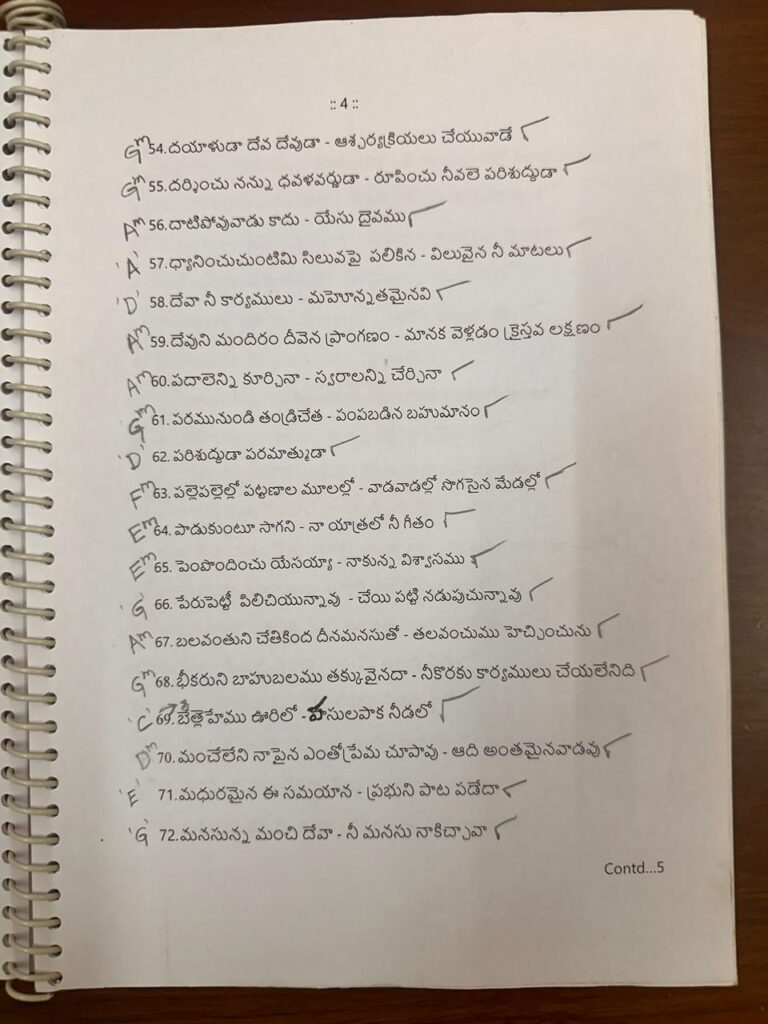 :: 4 ::
Gm 54.దయాళుడా దేవ దేవుడా - ఆశ్చర్యక్రియలు చేయువాడే
Gm 55.దర్శించు నన్ను ధవళవర్ణుడా - రూపించు నీవలె పరిశుద్ధుడా
Am 56.దాటిపోవువాడు కాదు - యేసు దైవము
'A' 57.ధ్యానించుచుంటిమి సిలువపై పలికిన - విలువైన నీ మాటలు
'D' 58.దేవా నీ కార్యములు - మహెూన్నతమైనవి
Am 59.దేవుని మందిరం దీవెన ప్రాంగణం - మానక వెళ్లడం క్రైస్తవ లక్షణం
Am 60.పదాలెన్ని కూర్చినా - స్వరాలన్ని చేర్చినా
Gm 61. పరమునుండి తండ్రిచేత - పంపబడిన బహుమానం
'D' 62. పరిశుద్ధుడా పరమాత్ముడా
Fm 63. పల్లెపల్లెల్లో పట్టణాల మూలల్లో - వాడవాడల్లో సొగసైన మేడల్లో
Em 64. పాడుకుంటూ సాగని - నా యాత్రలో నీ గీతం
Em 65. పెంపొందించు యేసయ్యా - నాకున్న విశ్వాసము
'G' 66. పేరుపెట్టీ పిలిచియున్నావు - చేయి పట్టి నడుపుచున్నావు
Am 67. బలవంతుని చేతికింద దీనమనసుతో - తలవంచుము హెచ్చించును
Gm 68.భీకరుని బాహుబలము తక్కువైనదా - నీకొరకు కార్యములు చేయలేనిది
'C' 69.బేత్లెహేము ఊరిలో - పాసులపాక నీడలో
Dm 70. మంచేలేని నాపైన ఎంతోప్రేమ చూపావు - ఆది అంతమైనవాడవు
'E' 71.మధురమైన ఈ సమయాన - ప్రభుని పాట పడేదా
'G' 72.మనసున్న మంచి దేవా - నీ మనసు నాకిచ్చావా
Contd...5